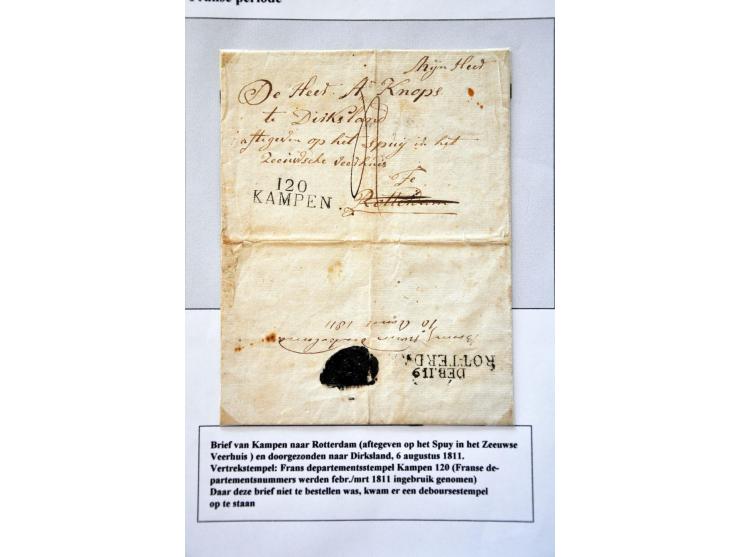 Franse periode
Mijn Heer
De Heer A Knops
te Dirksland
aftegeven op het Spuij in het
Zeeuwsche veerhuis
Te
Rotterdam
120
KAMPEN
1811
DEB.119
ROTTERD.
Brief van Kampen naar Rotterdam (aftegeven op het Spuy in het Zeeuwse
Veerhuis ) en doorgezonden naar Dirksland, 6 augustus 1811.
Vertrekstempel: Frans departementsstempel Kampen 120 (Franse de-
partementsnummers werden febr./mrt 1811 ingebruik genomen)
Daar deze brief niet te bestellen was, kwam er een deboursestempel
op te staan